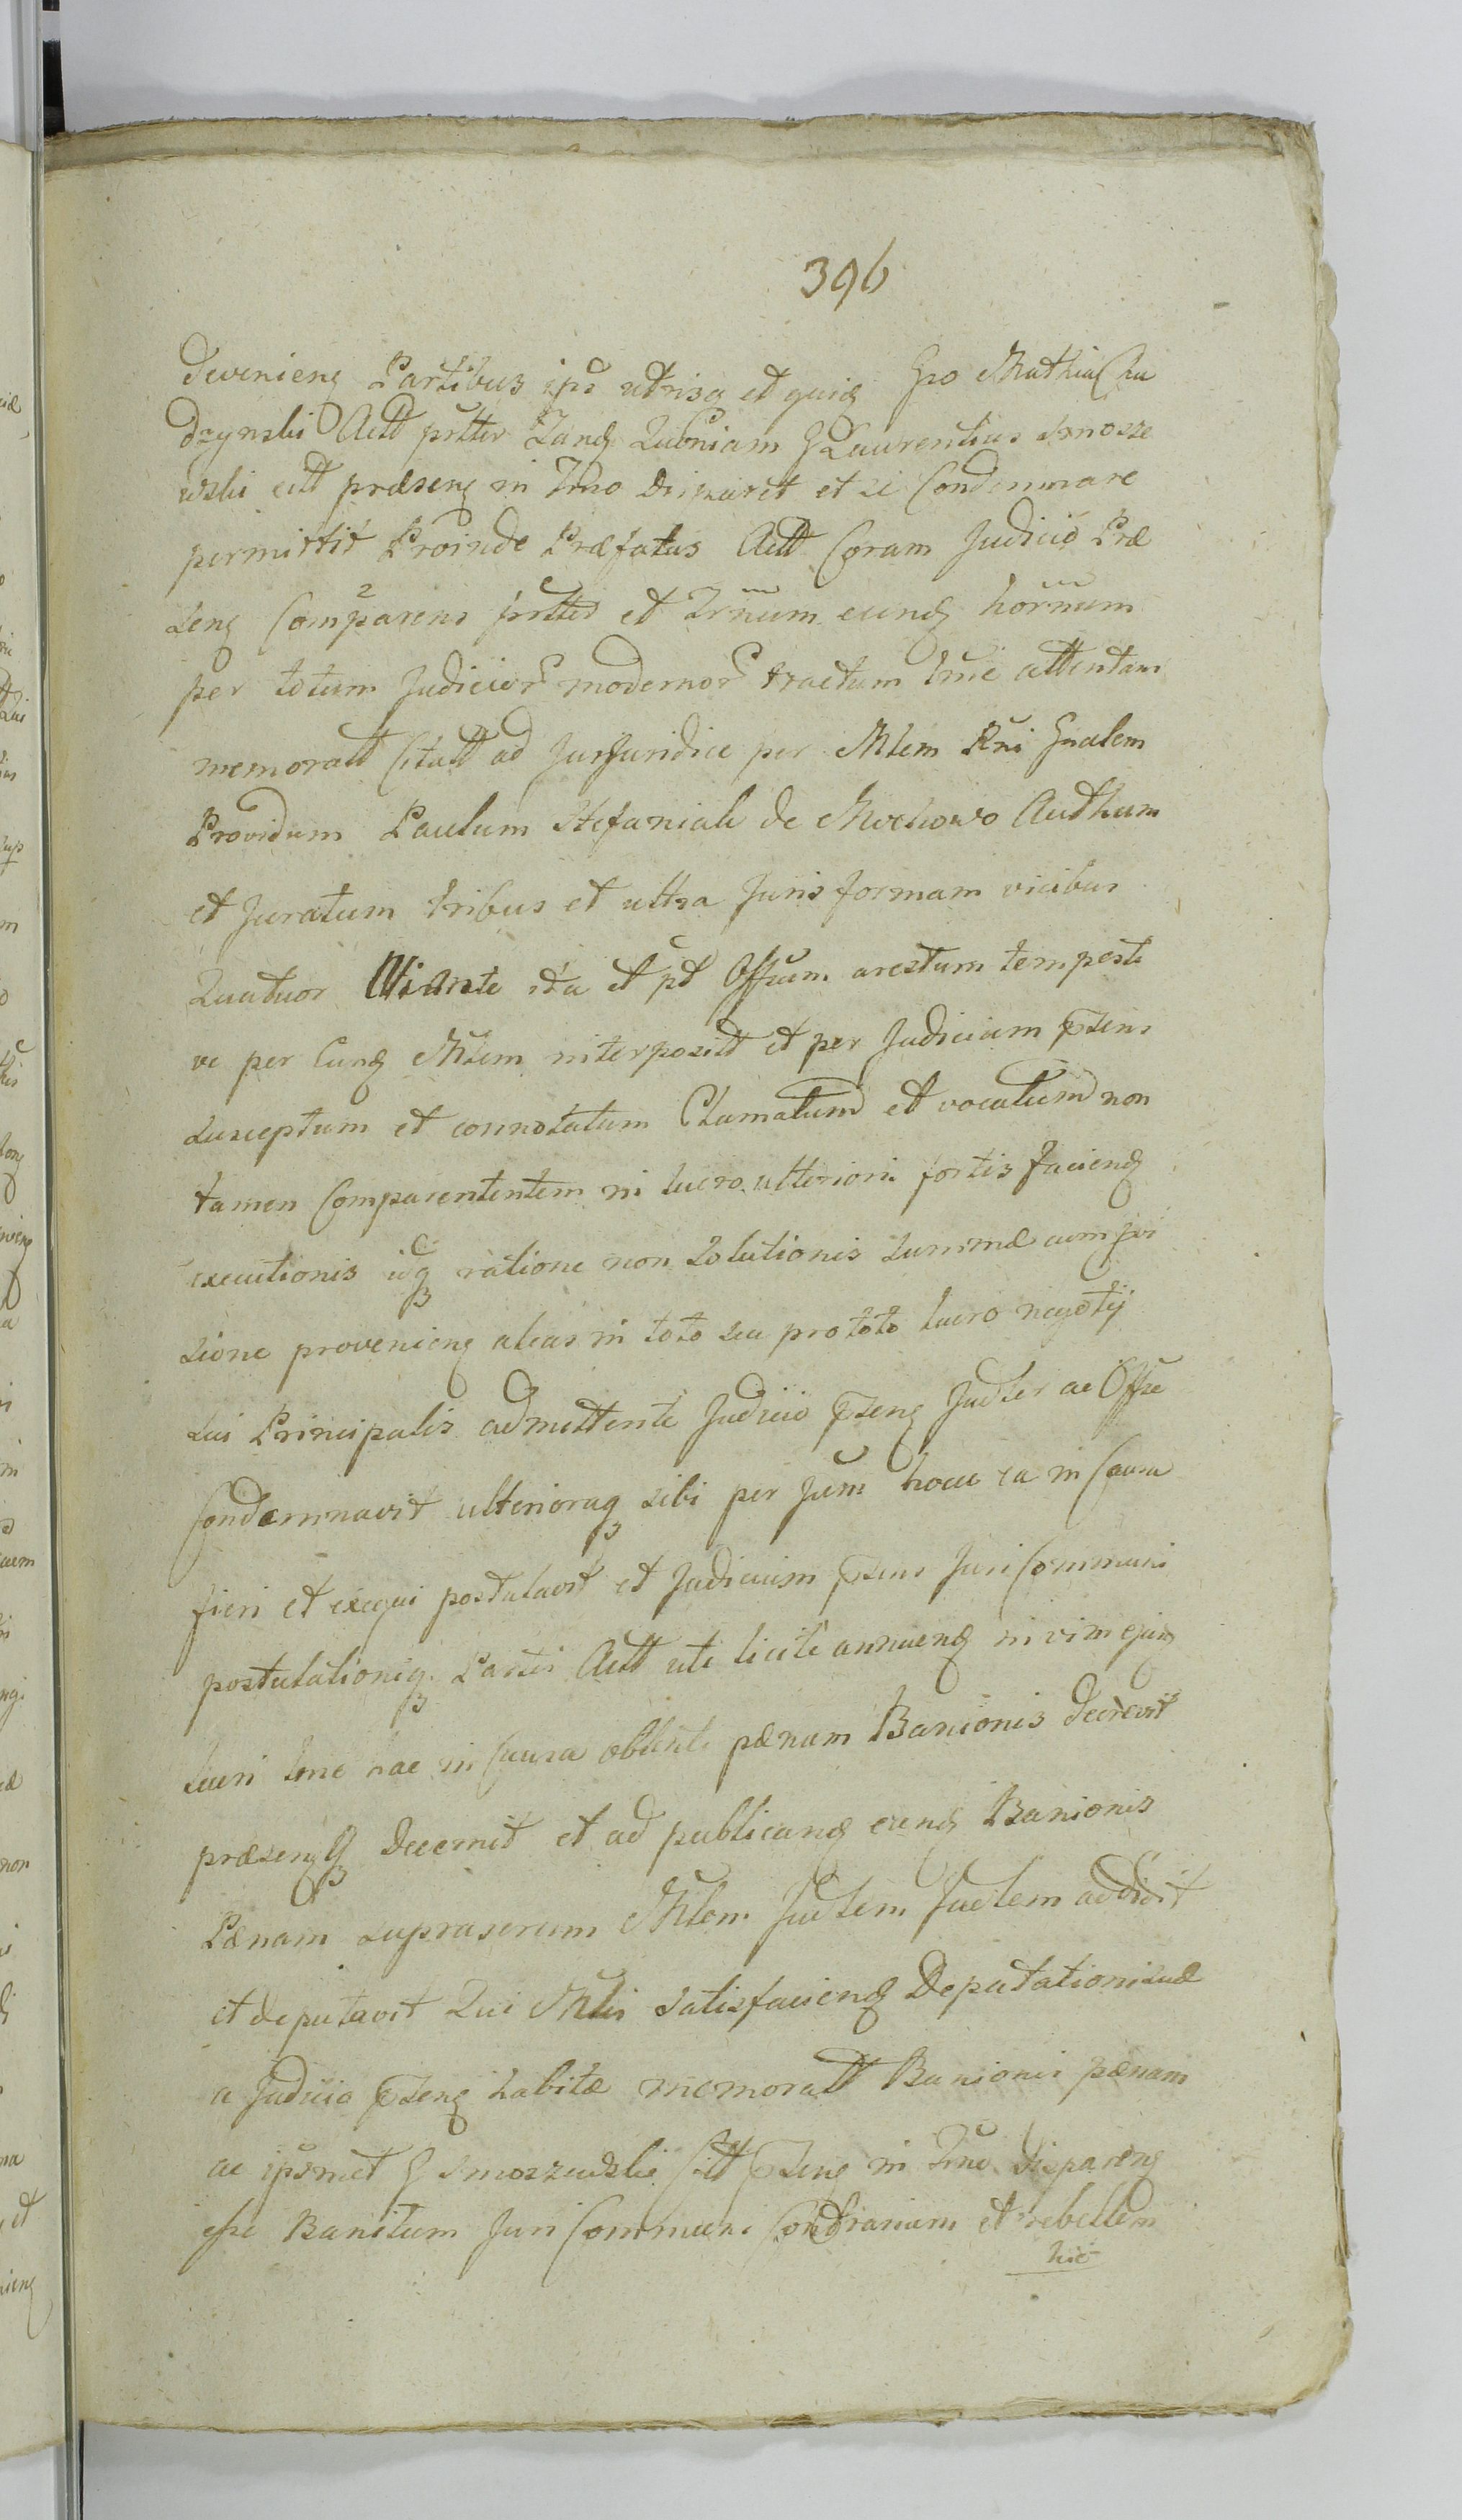 396
devenieng Partibus ips utrisq et quid Gso Mathia Chu
dzynski Actt prtter Gsaurentius Smosze
wski citt præseng in Trno Disparet et se Condemnare
permittit Proinde Præfatus Actt Coram Judicio Præ
seng Comparens prttes et Trnum eund hornum
per totum Judicior modernor tractum Trne attentam
memoratt Citatt ad Jus Juridice per Mlem Rni Gnalem
Providum Paulum Stefaniak de Mochowo Authum
et Juratum tribus et ultra Juris formam vicibus
Quatuor ita et pt Offum arestum tempesti
ve per Eund Mlem interpositt et per Judicium psens
susceptum et connotatum Clamatum et vocatum non
tamen Comparententem in lucro ulteriori fortis faciend
executionis idq ratione non Solutionis Summæ cum
sione provenieng alias in toto seu pro toto lucro negotij
sui Principalis admittente Judicio pseng Judler ac Offse
Condemnavit ulterioraq sibi per Jum hocce ea in Causa
fieri et exequi postulavit et Judicium psens Juri Communi
postulationiq Partis Actt uti licite annuend in vim ejusd
lucri Trne hac in Causa obtenti pænam Banionis decrevit
præsengq Decernit et ad publicand eand Banionis
Pænam suprascrum Mlem Judlem addidit
et deputavit Qui Mlis satisfaciend Deputationi suæ
a Judicio pseng habitæ memoratt Banionis pænam
ac ipsmet G Smoszewski Citt pseng in Trno dispareng
esse Banitum Juri Communi Contrarium et rebellem
hic